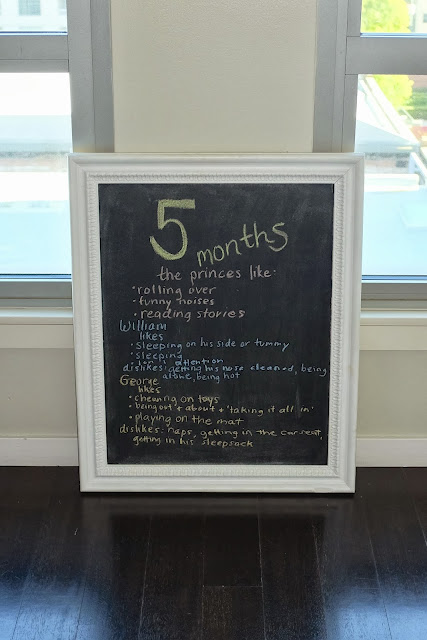 5
months
the princes like:
• rolling over
• funny noises
• reading stories
William
likes
• Sleeping on his side or tummy
• Sleeping
• attention
dislikes: getting his nose cleaned, being
alone, being hot
George
likes
• chewing on toys
• being out + about + 'taking it all in'
• playing on the mat
dislikes: naps, getting in the car seat,
getting in his sleepsack